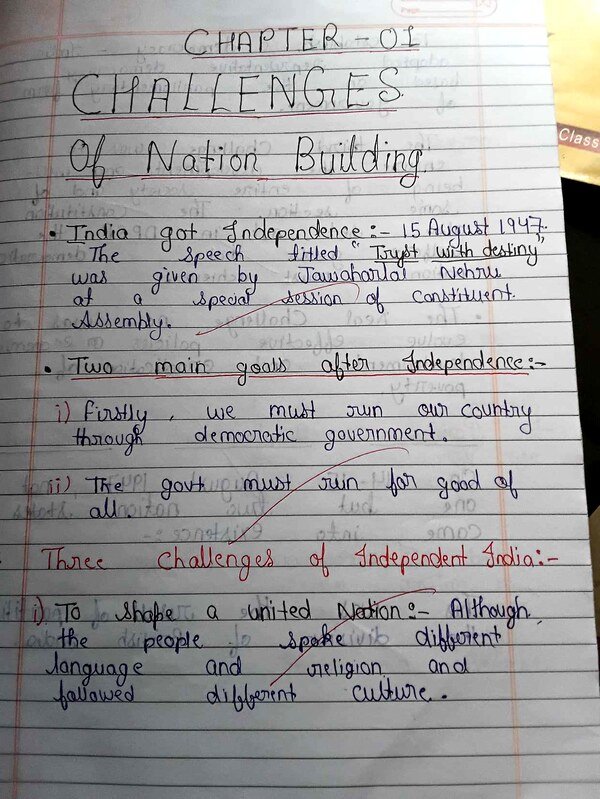 CHAPTER - 01
CHALLENGES
Of Nation Building
• India got Independence :- 15 August 1947.
The speech titled "Tryst with destiny"
was given by Jawaharlal Nehru
at a special session of Constituent
Assembly.
• Two main goals after Independence :-
i) Firstly, we must run our country
through democratic government.
ii) The govt must run for good of
all.
Three Challenges of Independent India :-
i) To shape a united Nation :- Although,
the people spoke different
language and religion and
followed different culture.
Class